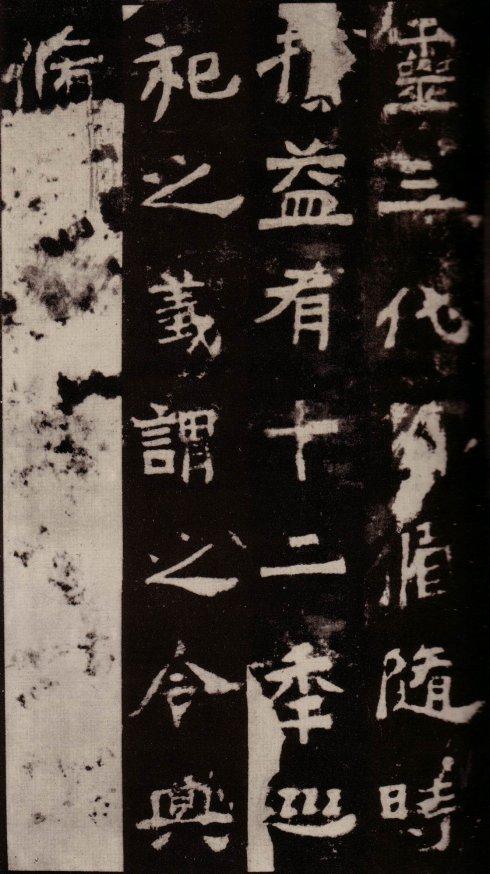 靈三代循隨時
損益有十二秊巡
祀之義謂之令典